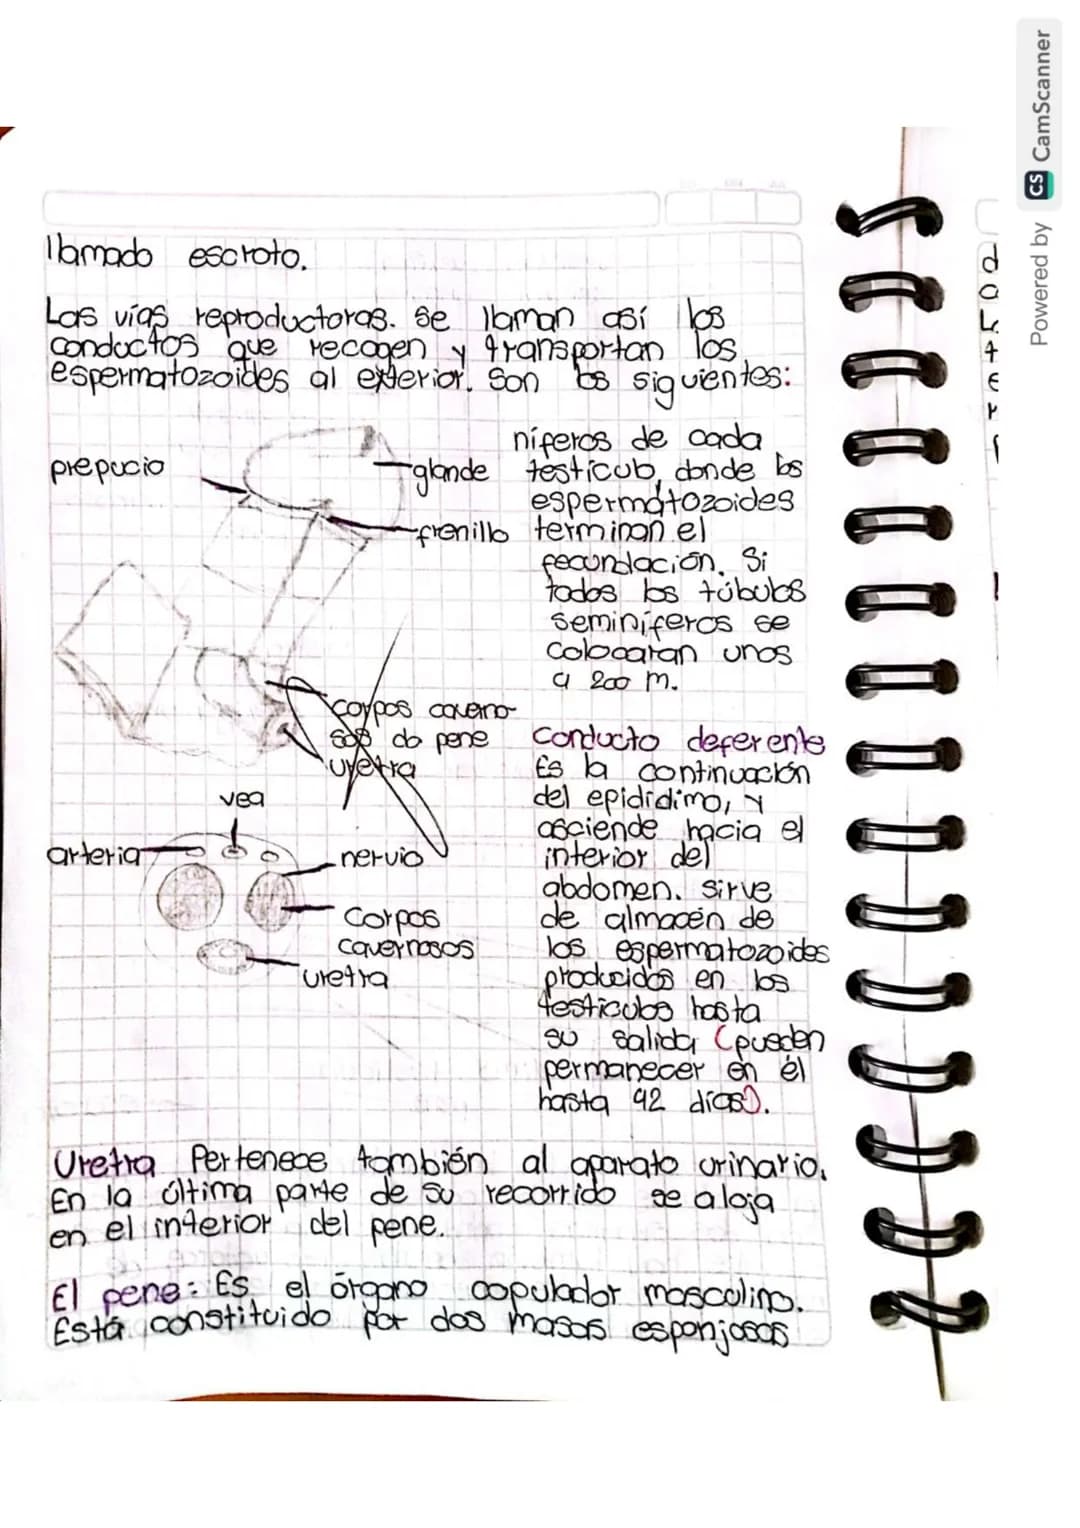 llamado escroto.
Las vías reproductoras. se llaman así los
conductos que recogen y transportan los
espermatozoides al exterior. Son los siguientes:
prepucio
glande
frenillo
níferos de cada
testículo, donde los
espermatozoides
terminan el
fecundación. Si
todos los túbulos
seminíferos se
colocaran unos
a 200 m.
corpos caverno-
sos do pene
uretra
vea
arteria
nervio
Corpos
cavernosos
uretra
Conducto deferente
Es la continuación
del epidídimo, y
asciende hacia el
interior del
abdomen. sirve
de almacén de
los espermatozoides
producidos en los
testículos hasta
su salida (pueden
permanecer en él
hasta 42 días).
Uretra Pertenece también al aparato urinario.
En la última parte de su recorrido se aloja
en el interior del pene.
El pene: Es el órgano copulador masculino.
Está constituido por dos masas esponjosas
Powered by CS CamScanner